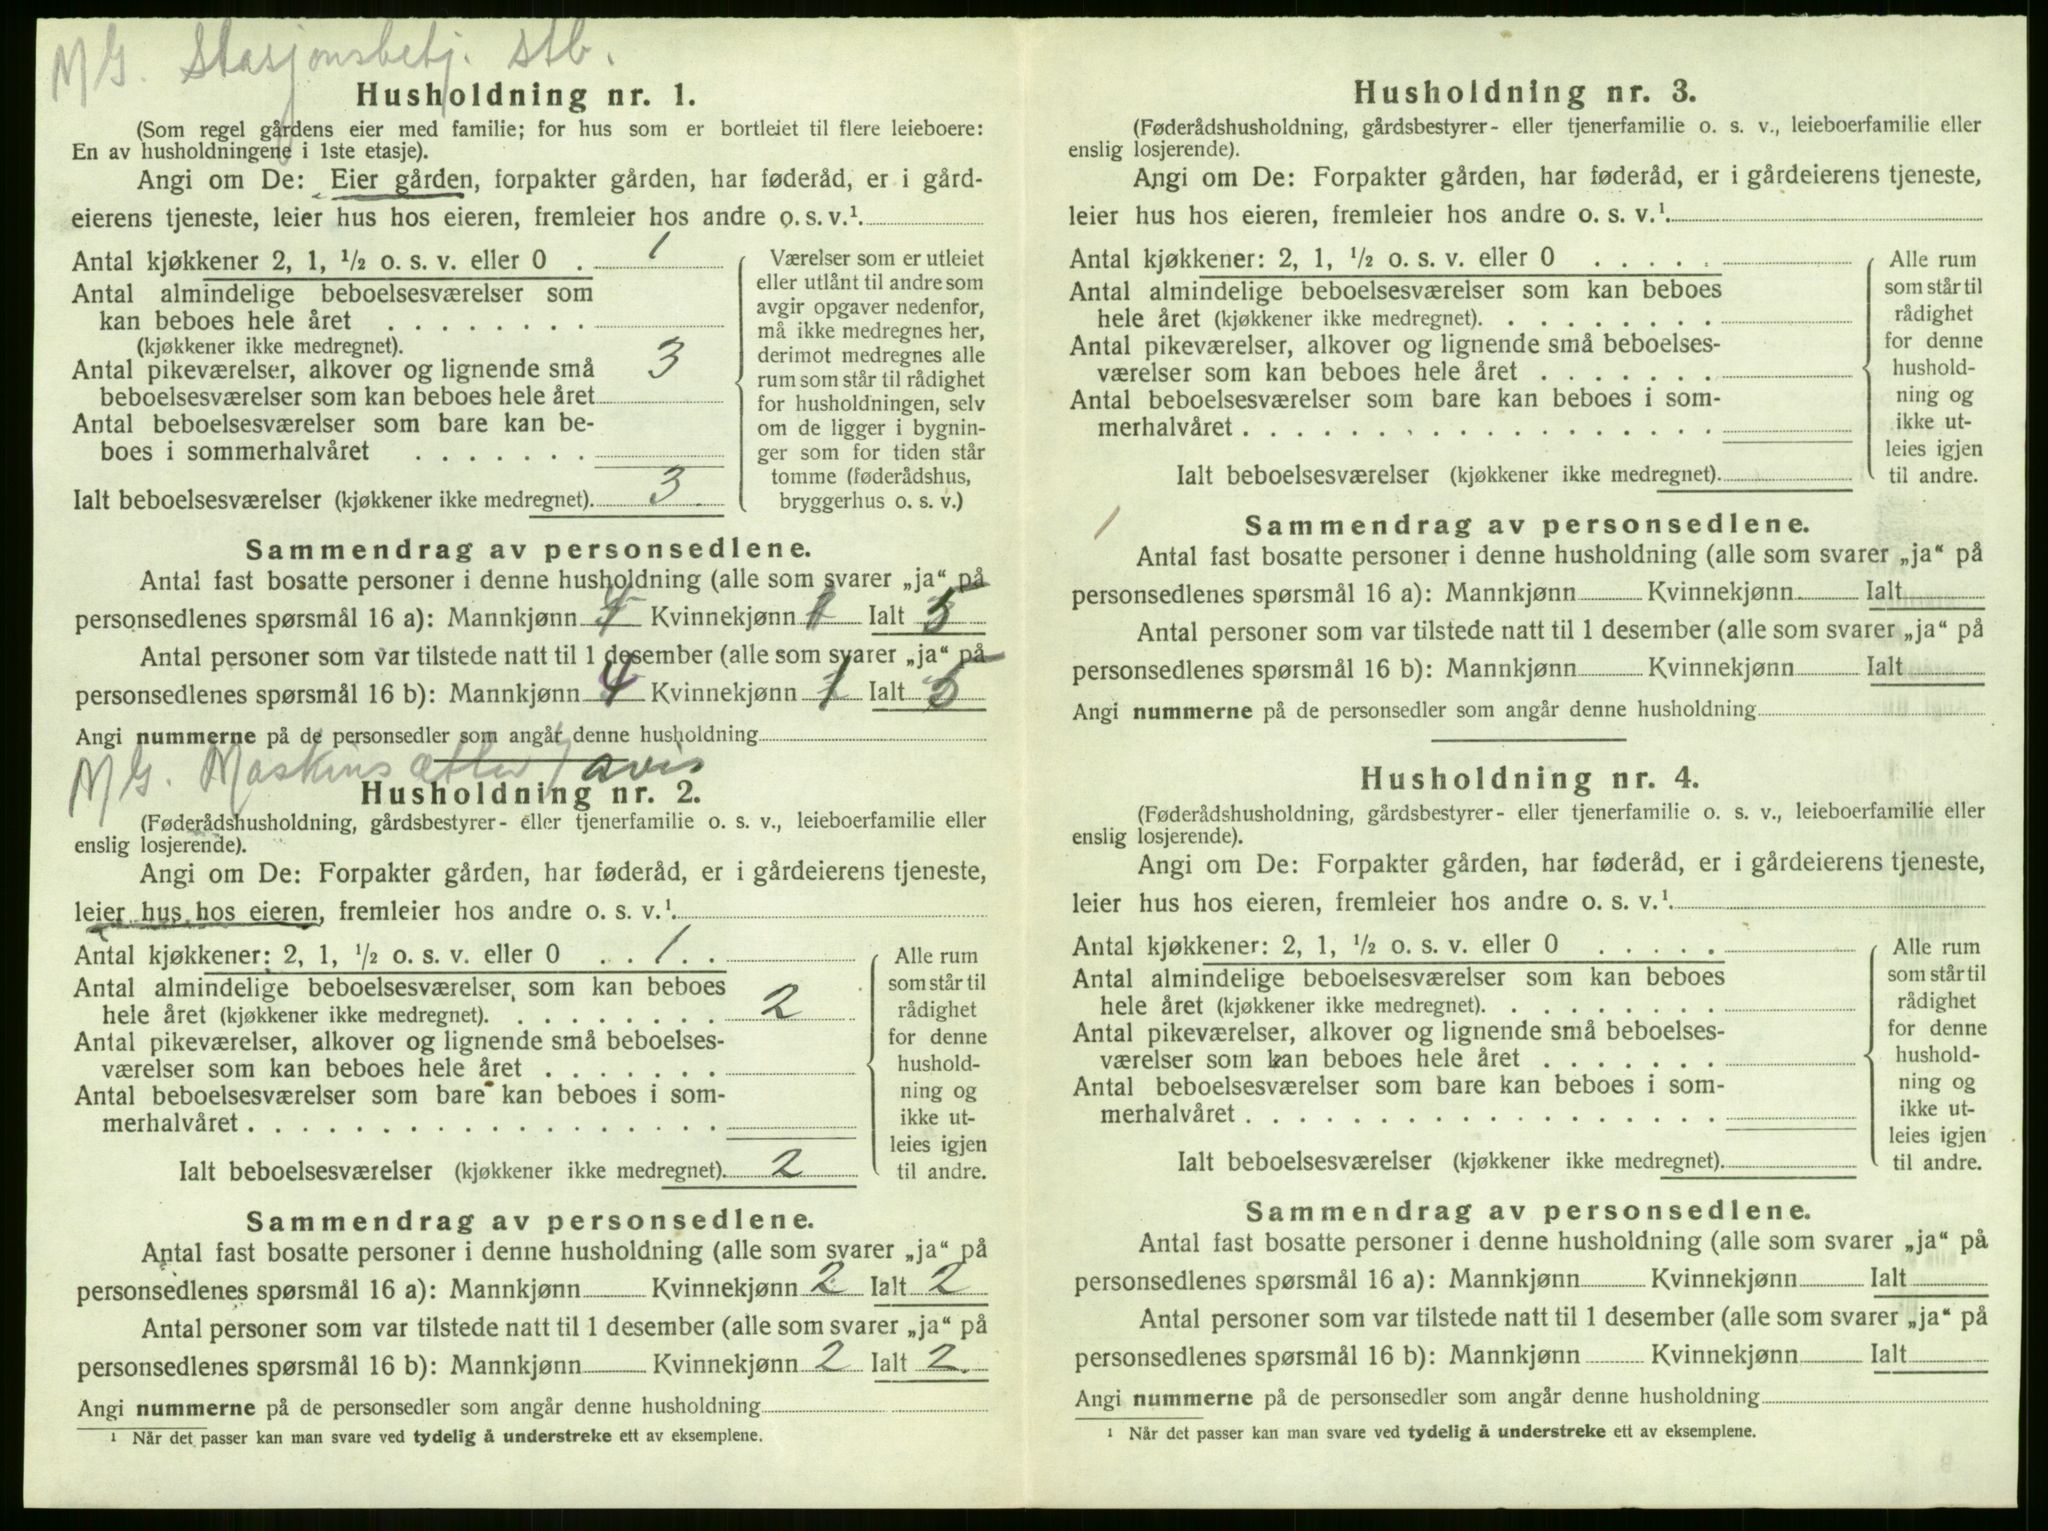 MG. Stasjonsbetj. stb.
Husholdning nr. 1.
(Som regel gårdens eier med familie; for hus som er bortleiet til flere leieboere:
En av husholdningene i 1ste etasje).
Angi om De: Eier gården, forpakter gården, har føderåd, er i gård-
eierens tjeneste, leier hus hos eieren, fremleier hos andre o. s. v.¹.
Antal kjøkkener 2, 1, ½ o. s. v. eller 0 . 1
Antal almindelige beboelsesværelser som
kan beboes hele året . . . . . . . .
(kjøkkener ikke medregnet).
Antal pikeværelser, alkover og lignende små 3
beboelsesværelser som kan beboes hele året
Antal beboelsesværelser som bare kan be-
boes i sommerhalvåret . . . . . . .
Ialt beboelsesværelser (kjøkkener ikke medregnet). 3
Værelser som er utleiet
eller utlånt til andre som
avgir opgaver nedenfor,
må ikke medregnes her,
derimot medregnes alle
rum som står til rådighet
for husholdningen, selv
om de ligger i bygnin-
ger som for tiden står
tomme (føderådshus,
bryggerhus o. s. v.)
Sammendrag av personsedlene.
Antal fast bosatte personer i denne husholdning (alle som svarer „ja“ på
personsedlenes spørsmål 16 a): Mannkjønn 4 Kvinnekjønn 1 Ialt 5
Antal personer som var tilstede natt til 1 desember (alle som svarer „ja“ på
personsedlenes spørsmål 16 b): Mannkjønn 4 Kvinnekjønn 1 Ialt 5
Angi nummerne på de personsedler som angår denne husholdning
MG. Maskinsætter / avis
Husholdning nr. 2.
(Føderådshusholdning, gårdsbestyrer- eller tjenerfamilie o. s. v., leieboerfamilie eller
enslig losjerende).
Angi om De: Forpakter gården, har føderåd, er i gårdeierens tjeneste,
leier hus hos eieren, fremleier hos andre o. s. v.¹.
Antal kjøkkener: 2, 1, ½ o. s. v. eller 0 . . 1 . .
Antal almindelige beboelsesværelser, som kan beboes
hele året (kjøkkener ikke medregnet). . . . . . . . . 2
Antal pikeværelser, alkover og lignende små beboelses-
værelser som kan beboes hele året . . . . . . .
Antal beboelsesværelser som bare kan beboes i som-
merhalvåret . . . . . . . . . . . . . . . . . .
Ialt beboelsesværelser (kjøkkener ikke medregnet). 2
Alle rum
som står til
rådighet
for denne
hushold-
ning og
ikke ut-
leies igjen
til andre.
Sammendrag av personsedlene.
Antal fast bosatte personer i denne husholdning (alle som svarer „ja“ på
personsedlenes spørsmål 16 a): Mannkjønn Kvinnekjønn 2 Ialt 2
Antal personer som var tilstede natt til 1 desember (alle som svarer „ja“ på
personsedlenes spørsmål 16 b): Mannkjønn Kvinnekjønn 2 Ialt 2
Angi nummerne på de personsedler som angår denne husholdning
¹ Når det passer kan man svare ved tydelig å understreke ett av eksemplene.
Husholdning nr. 3.
(Føderådshusholdning, gårdsbestyrer- eller tjenerfamilie o. s. v., leieboerfamilie eller
enslig losjerende).
Angi om De: Forpakter gården, har føderåd, er i gårdeierens tjeneste,
leier hus hos eieren, fremleier hos andre o. s. v.¹.
Antal kjøkkener: 2, 1, ½ o. s. v. eller 0 . . . . .
Antal almindelige beboelsesværelser som kan beboes
hele året (kjøkkener ikke medregnet). . . . . . . . .
Antal pikeværelser, alkover og lignende små beboelses-
værelser som kan beboes hele året . . . . . . .
Antal beboelsesværelser som bare kan beboes i som-
merhalvåret . . . . . . . . . . . . . . . . . .
Ialt beboelsesværelser (kjøkkener ikke medregnet).
Alle rum
som står til
rådighet
for denne
hushold-
ning og
ikke ut-
leies igjen
til andre.
1
Sammendrag av personsedlene.
Antal fast bosatte personer i denne husholdning (alle som svarer „ja“ på
personsedlenes spørsmål 16 a): Mannkjønn Kvinnekjønn Ialt
Antal personer som var tilstede natt til 1 desember (alle som svarer „ja“ på
personsedlenes spørsmål 16 b): Mannkjønn Kvinnekjønn Ialt
Angi nummerne på de personsedler som angår denne husholdning
Husholdning nr. 4.
(Føderådshusholdning, gårdsbestyrer- eller tjenerfamilie o. s. v., leieboerfamilie eller
enslig losjerende).
Angi om De: Forpakter gården, har føderåd, er i gårdeierens tjeneste,
leier hus hos eieren, fremleier hos andre o. s. v.¹.
Antal kjøkkener: 2, 1, ½ o. s. v. eller 0 . . . . .
Antal almindelige beboelsesværelser som kan beboes
hele året (kjøkkener ikke medregnet). . . . . . . . .
Antal pikeværelser, alkover og lignende små beboelses-
værelser som kan beboes hele året . . . . . . .
Antal beboelsesværelser som bare kan beboes i som-
merhalvåret . . . . . . . . . . . . . . . . . .
Ialt beboelsesværelser (kjøkkener ikke medregnet).
Alle rum
som står til
rådighet
for denne
hushold-
ning og
ikke ut-
leies igjen
til andre.
Sammendrag av personsedlene.
Antal fast bosatte personer i denne husholdning (alle som svarer „ja“ på
personsedlenes spørsmål 16 a): Mannkjønn Kvinnekjønn Ialt
Antal personer som var tilstede natt til 1 desember (alle som svarer „ja“ på
personsedlenes spørsmål 16 b): Mannkjønn Kvinnekjønn Ialt
Angi nummerne på de personsedler som angår denne husholdning
¹ Når det passer kan man svare ved tydelig å understreke ett av eksemplene.